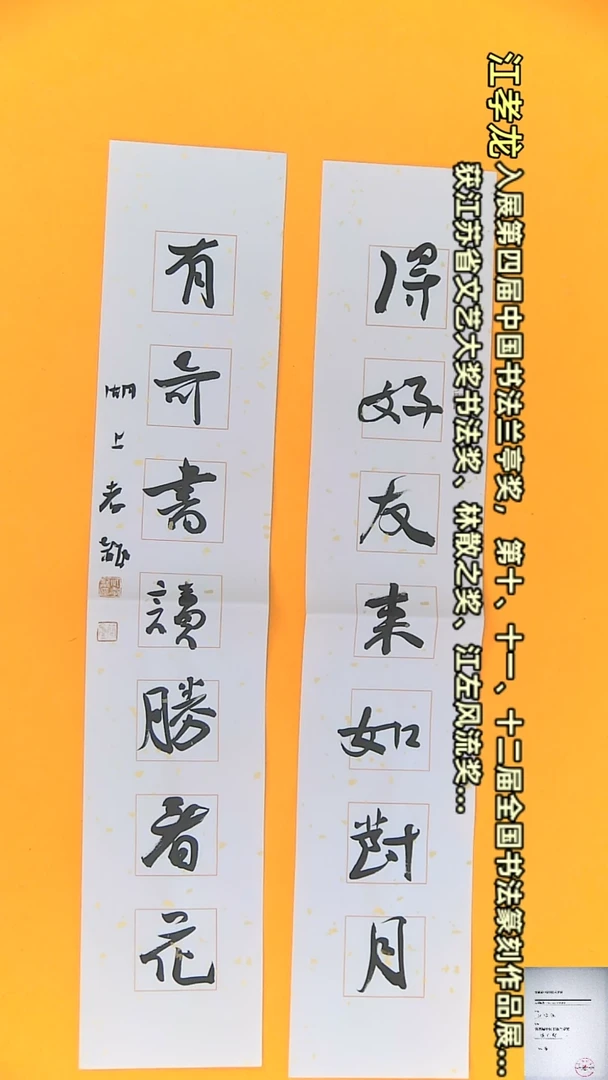 江孝龙 入展第四届中国书法兰亭奖，第十、十一、十二届全国书法篆刻作品展...
获江苏省文艺大奖书法奖、林散之奖、江左风流奖...
得好友来如對月
有奇書讀勝看花
湖上老龍